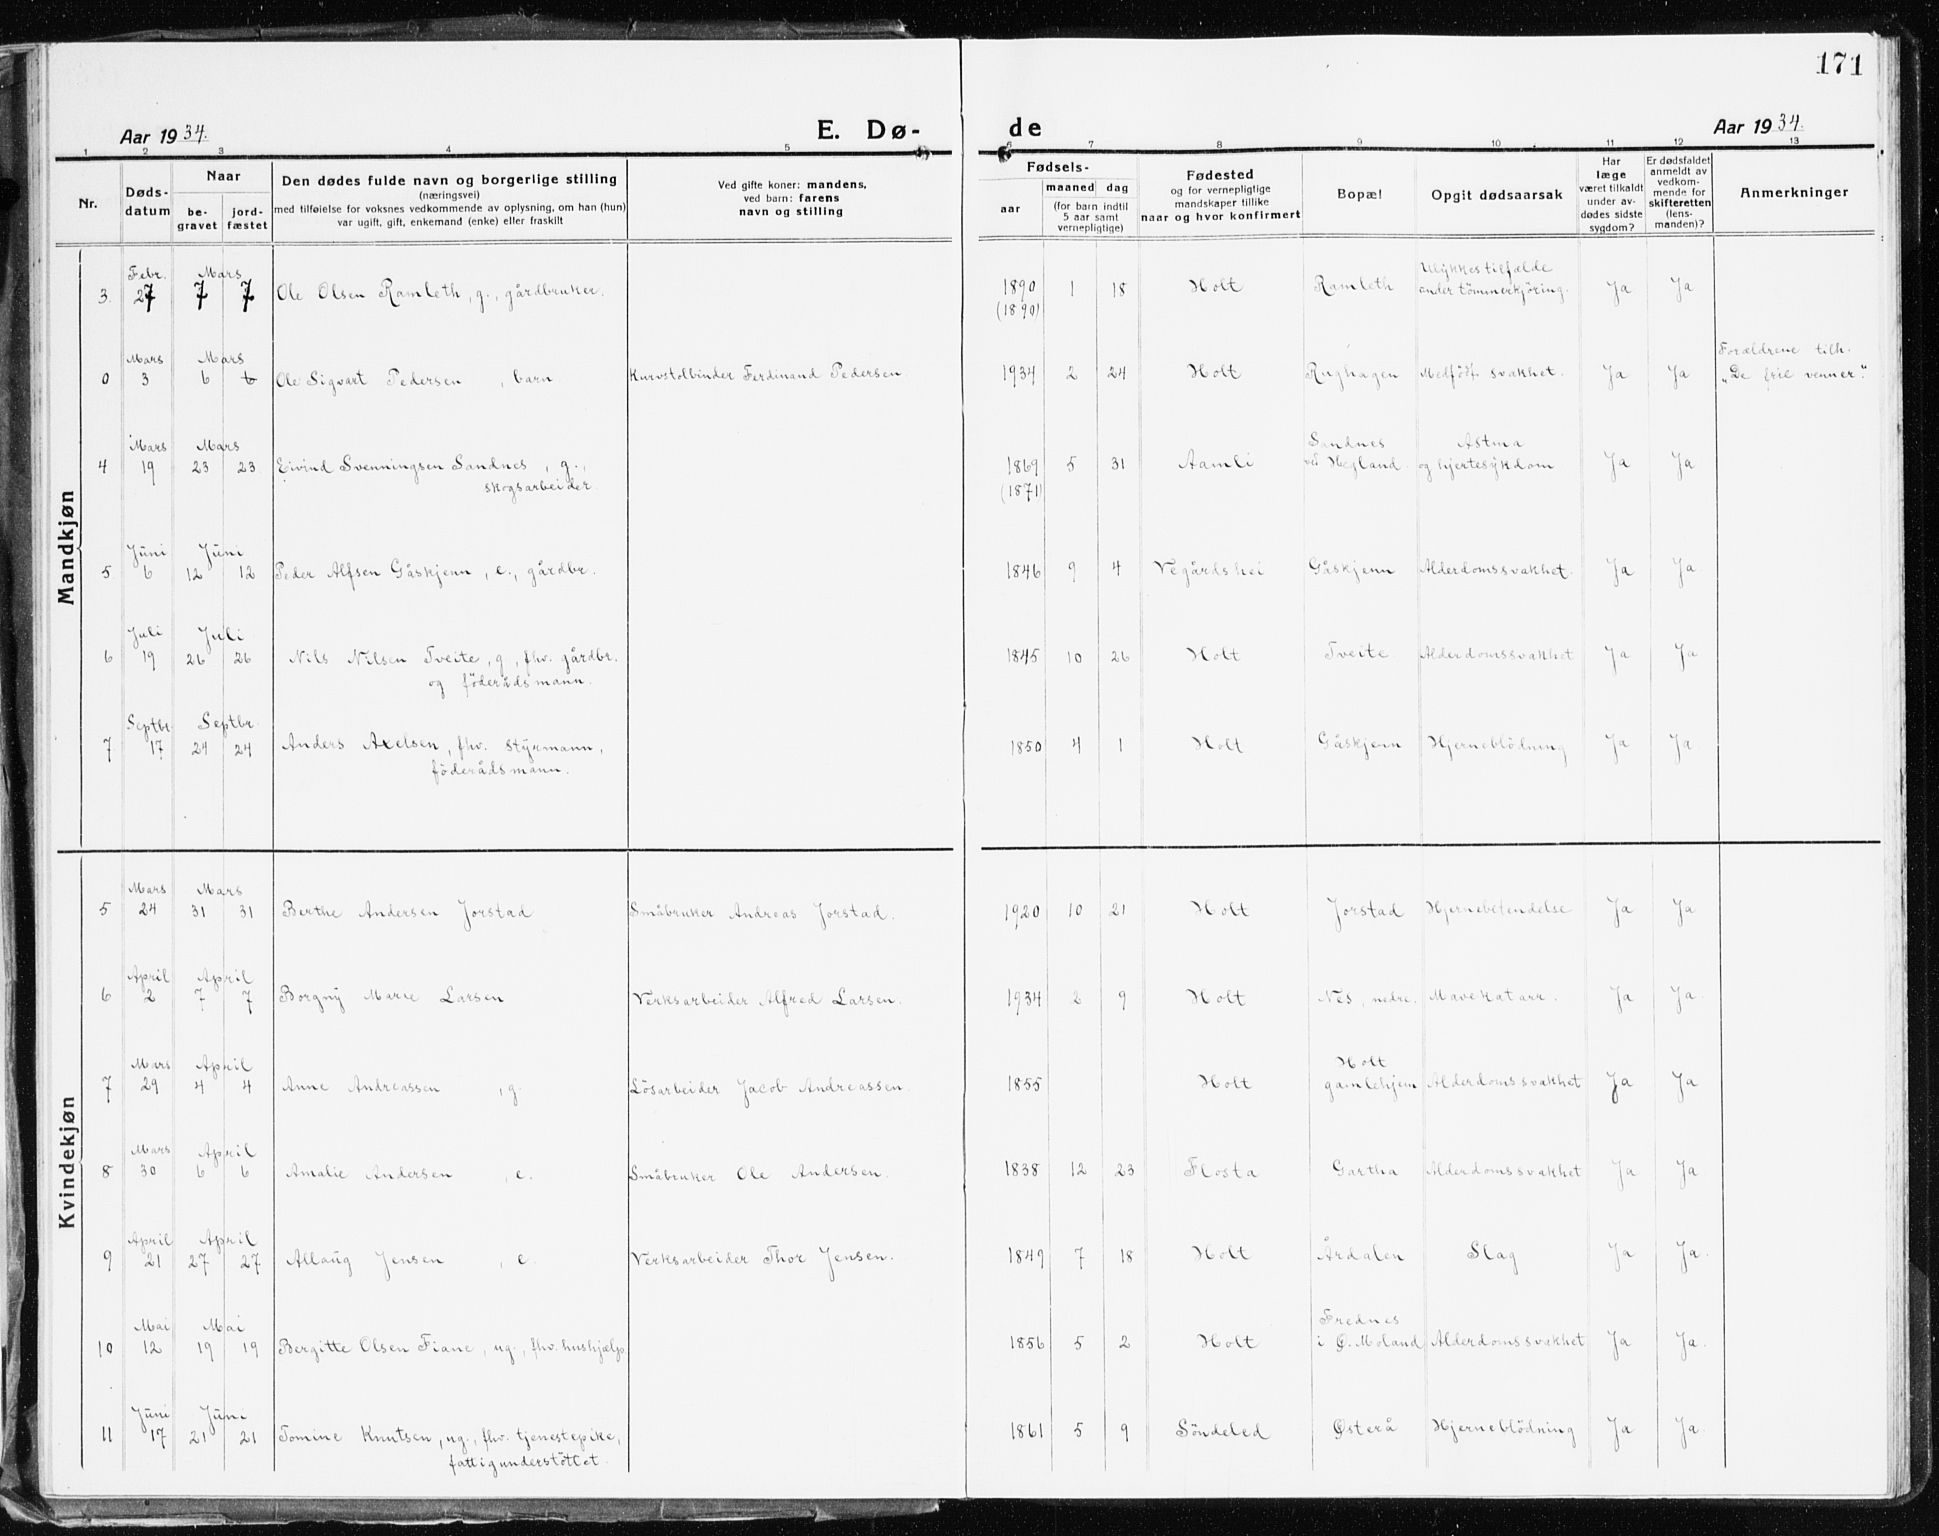 171
Aar 1934.
E. Dø-
de
Aar 1934.
1 2 3 4 5 6 7 8 9 10 11 12 13
Nr.
Døds-
datum
Naar
be-
gravet
jord-
fæstet
Den dødes fulde navn og borgerlige stilling
(næringsvei)
med tilføielse for voksnes vedkommende av oplysning, om han (hun)
var ugift, gift, enkemand (enke) eller fraskilt
Ved gifte koner: mandens,
ved barn: farens
navn og stilling
Fødsels-
aar
maaned dag
(for barn indtil
5 aar samt
vernepligtige)
Fødested
og for vernepligtige
mandskaper tillike
naar og hvor konfirmert
Bopæl
Opgit dødsaarsak
Har
læge
været tilkaldt
under av-
dødes sidste
sygdom?
Er dødsfaldet
anmeldt av
vedkom-
mende for
skifteretten
(lens-
manden)?
Anmerkninger
Mandkjøn
Febr. Mars Ulykkestilfælde
3. 27 7 7 Ole Olsen Ramleth, g., gårdbruker. 1890 1 18 Holt Ramleth under tömmerkjöring. Ja Ja
(1890)
Mars Mars Forældrene tilh.
0 3 6 6 Ole Sigvart Pedersen, barn Kurvstolbinder Ferdinand Pedersen. 1934 2 24 Holt Rughagen Medfödt svakhet. Ja Ja "De frie venner".
Mars Mars Sandnes Astma
4 19 23 23 Eivind Svenningsen Sandnes, g., 1869 5 31 Aamli ved Hegland. og hjertesykdom Ja Ja
skogsarbeider. (1871)
Juni Juni
5 6 12 12 Peder Alfsen Gåskjenn, e., gårdbr. 1846 9 4 Vegårdshei Gåskjenn Alderdomssvakhet. Ja Ja
Juli Juli
6 19 26 26 Nils Nilsen Tveite, g., fhv. gårdbr. 1845 10 26 Holt Tveite. Alderdomssvakhet Ja Ja
og föderådsmann.
Septbr. Septbr.
7 17 24 24 Anders Axelsen, fhv. styrmann, 1850 4 1 Holt Gåskjenn Hjerneblödning Ja Ja
föderådsmann.
Kvindekjøn
Mars Mars
5 24 31 31 Berthe Andersen Jorstad Småbruker Andreas Jorstad. 1920 10 21 Holt Jorstad Hjernebetendelse Ja Ja
April April
6 2 7 7 Borgny Marie Larsen Verksarbeider Alfred Larsen. 1934 2 9 Holt Nes, nedre. Mavekatarr. Ja Ja.
Mars April Holt
7 29 4 4 Anne Andreassen, g. Lösarbeider Jacob Andreassen. 1855 Holt gamlehjem Alderdomssvakhet Ja Ja
Mars April
8 30 6 6 Amalie Andersen, e. Småbruker Ole Andersen. 1838 12 23 Flosta Gartha Alderdomssvakhet Ja Ja
April April
9 21 27 27 Allaug Jensen, e. Verksarbeider Thor Jensen. 1849 7 18 Holt Årdalen Slag Ja Ja.
Mai Mai Frednes
10 12 19 19 Bergitte Olsen Fiane, ug., fhv. hushjælp. 1856 5 2 Holt i Ø. Moland Alderdomssvakhet Ja Ja.
Juni Juni
11 17 21 21 Tomine Knutsen, ug., fhv. tjenestepike, 1861 5 9 Söndeled Østerå Hjerneblödning Ja Ja.
fattigunderstöttet.